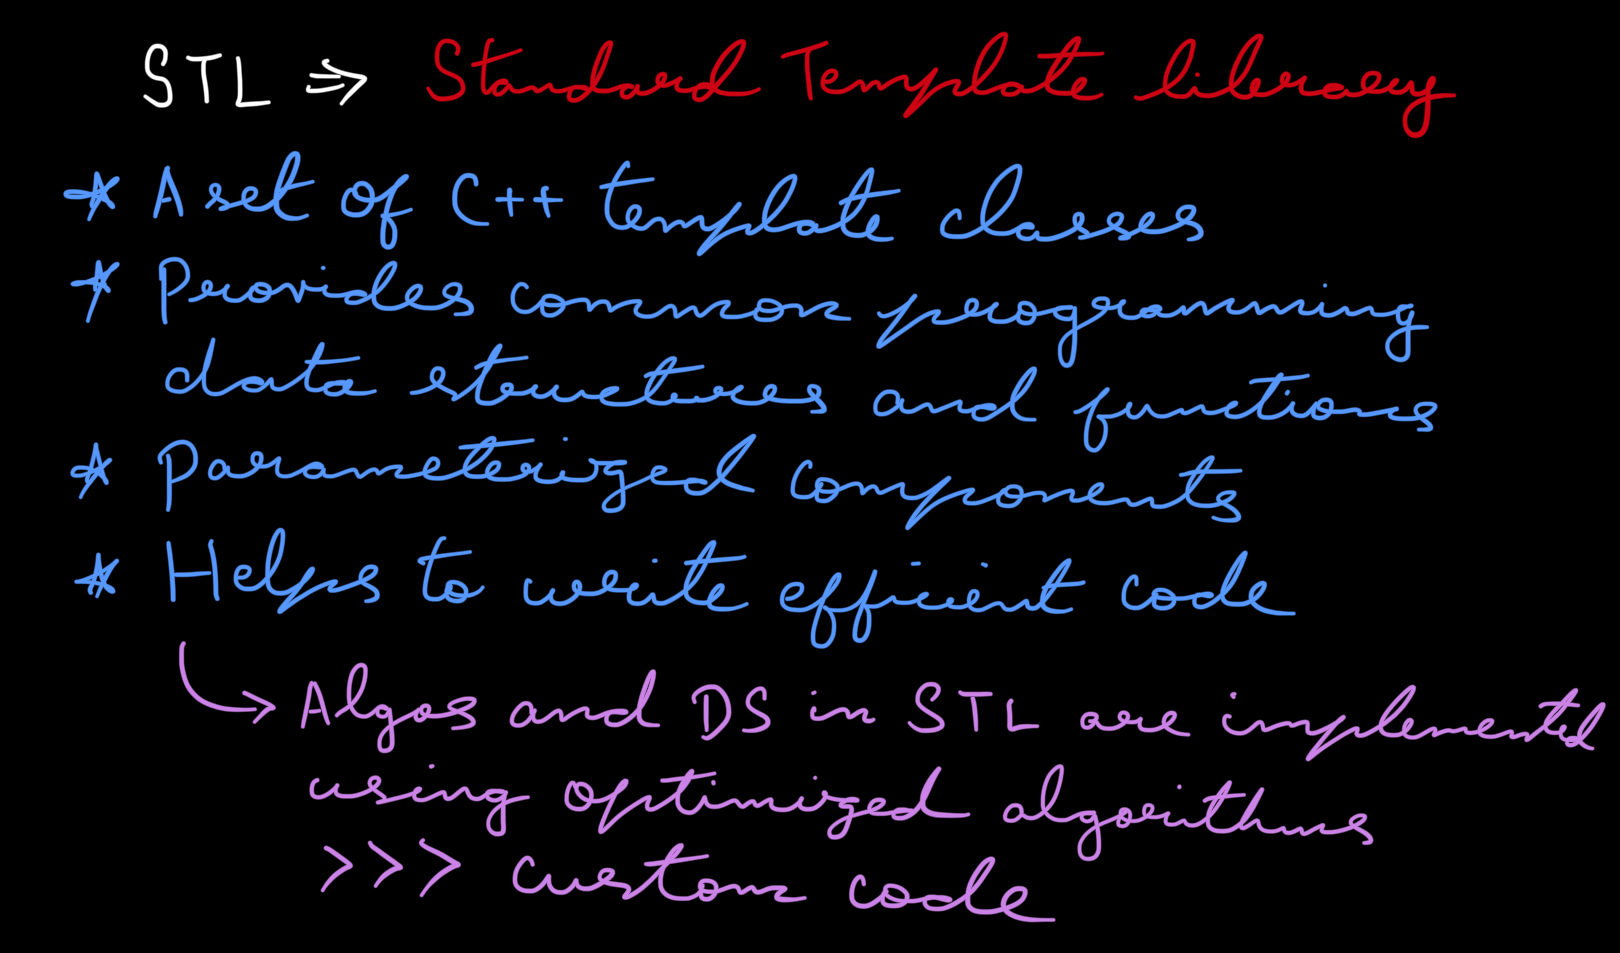 STL ⇒ Standard Template library
* A set of C++ template classes
* Provides common programming
data structures and functions
* Parameterized components
* Helps to write efficient code
↳ Algos and DS in STL are implemented
using optimized algorithms
>>> custom code